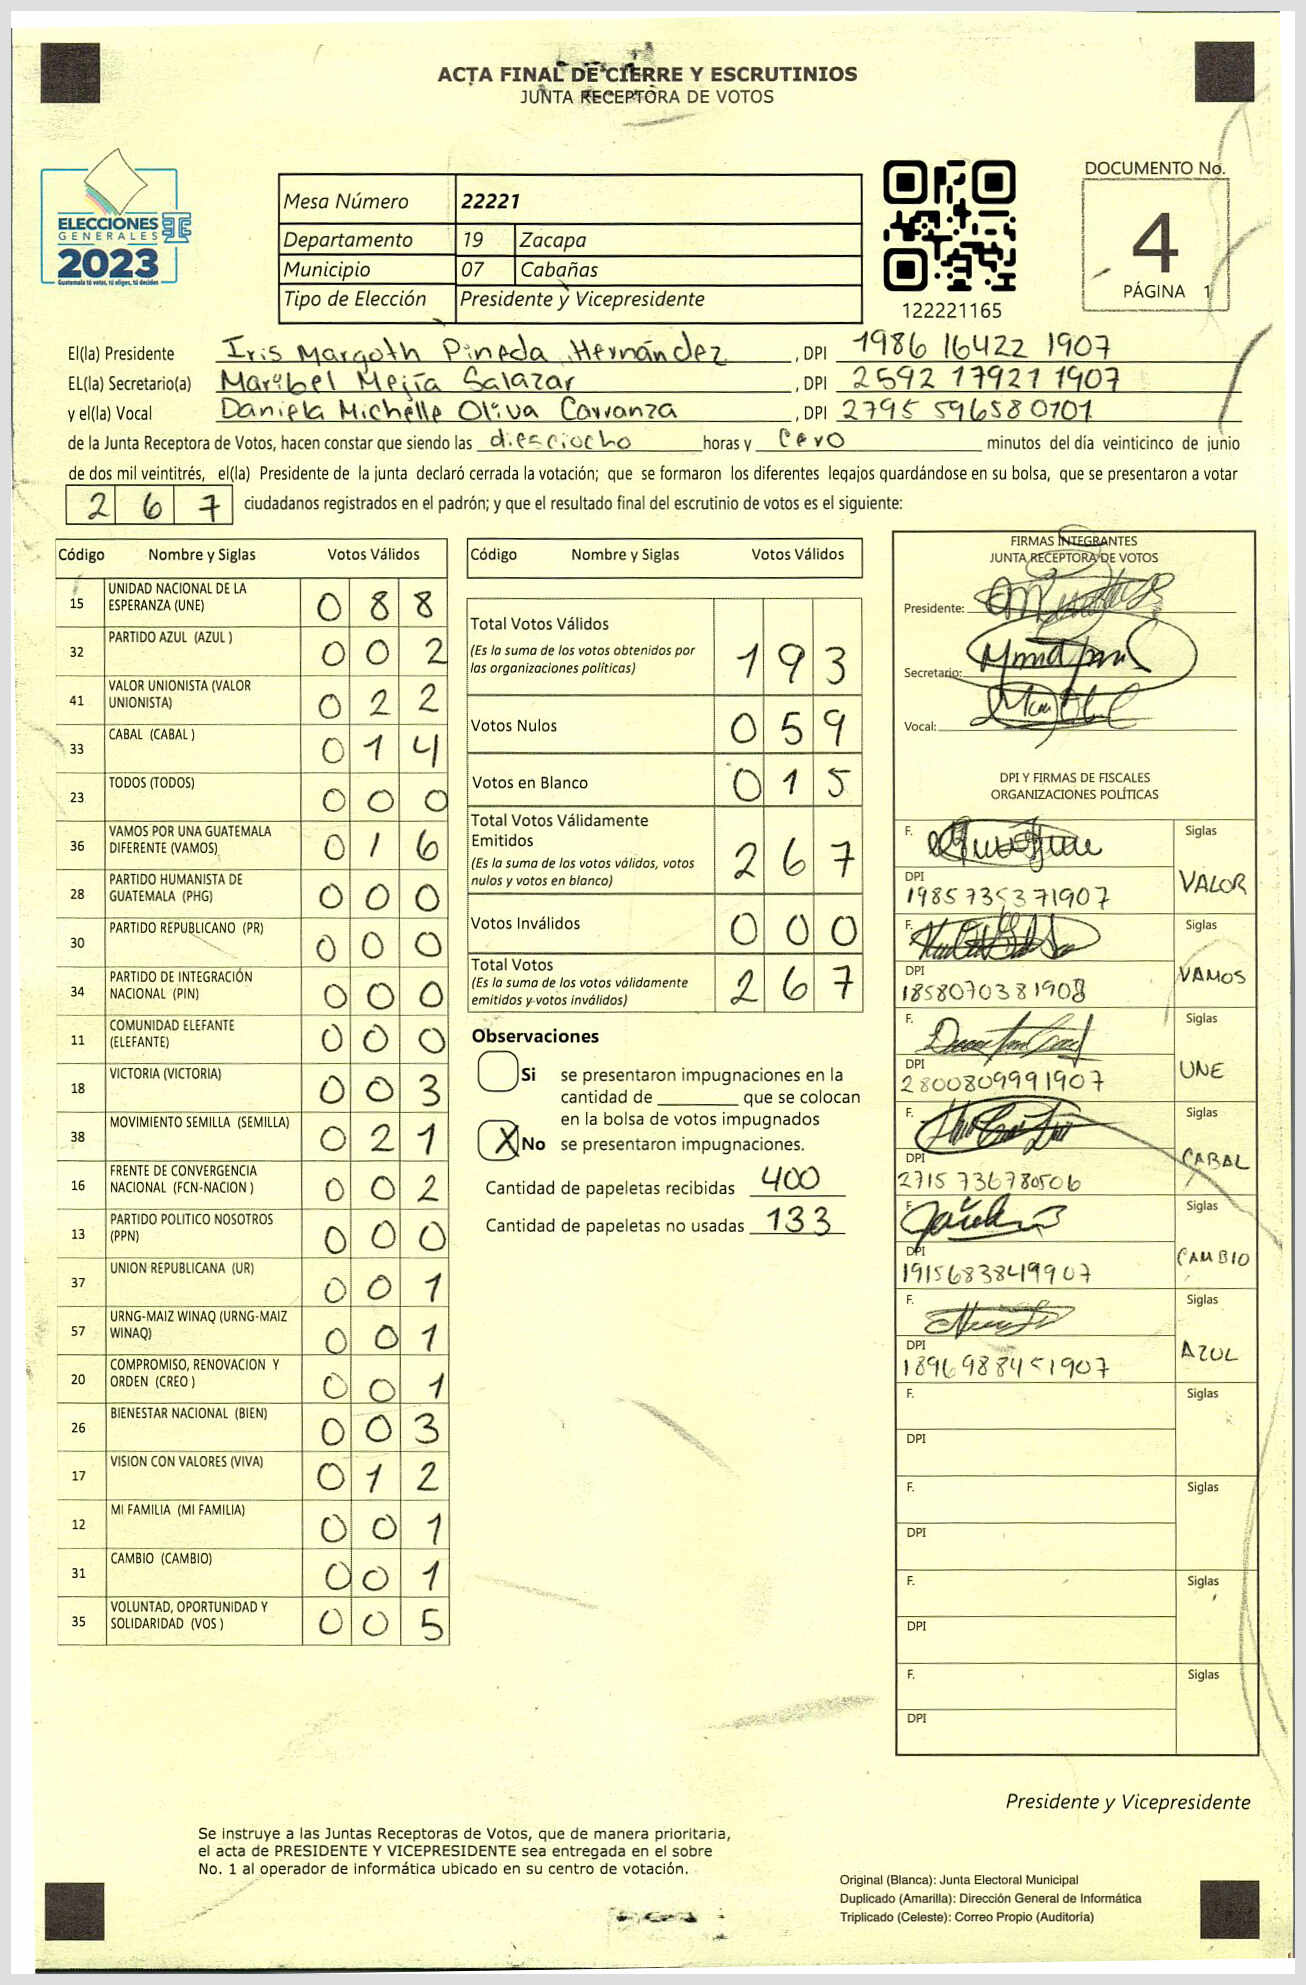 ACTA FINAL DE CIERRE Y ESCRUTINIOS
JUNTA RECEPTORA DE VOTOS
ELECCIONES
GENERALES
2023
Guatemala tú votas, tú eliges, tú decides
Mesa Número 22221
Departamento 19 Zacapa
Municipio 07 Cabañas
Tipo de Elección Presidente y Vicepresidente
122221165
DOCUMENTO No.
4
PÁGINA 1
El(la) Presidente Iris Margoth Pineda Hernández , DPI 1986 16422 1907
EL(la) Secretario(a) Maribel Mejía Salazar , DPI 2592 17921 1907
y el(la) Vocal Daniela Michelle Oliva Carranza , DPI 2795 596580101
de la Junta Receptora de Votos, hacen constar que siendo las diesciocho horas y cero minutos del día veinticinco de junio
de dos mil veintitrés, el(la) Presidente de la junta declaró cerrada la votación; que se formaron los diferentes legajos quardándose en su bolsa, que se presentaron a votar
267 ciudadanos registrados en el padrón; y que el resultado final del escrutinio de votos es el siguiente:
Código Nombre y Siglas Votos Válidos
15 UNIDAD NACIONAL DE LA ESPERANZA (UNE) 088
32 PARTIDO AZUL (AZUL ) 002
41 VALOR UNIONISTA (VALOR UNIONISTA) 022
33 CABAL (CABAL ) 014
23 TODOS (TODOS) 000
36 VAMOS POR UNA GUATEMALA DIFERENTE (VAMOS) 016
28 PARTIDO HUMANISTA DE GUATEMALA (PHG) 000
30 PARTIDO REPUBLICANO (PR) 000
34 PARTIDO DE INTEGRACIÓN NACIONAL (PIN) 000
11 COMUNIDAD ELEFANTE (ELEFANTE) 000
18 VICTORIA (VICTORIA) 003
38 MOVIMIENTO SEMILLA (SEMILLA) 021
16 FRENTE DE CONVERGENCIA NACIONAL (FCN-NACION ) 002
13 PARTIDO POLITICO NOSOTROS (PPN) 000
37 UNION REPUBLICANA (UR) 001
57 URNG-MAIZ WINAQ (URNG-MAIZ WINAQ) 001
20 COMPROMISO, RENOVACION Y ORDEN (CREO ) 001
26 BIENESTAR NACIONAL (BIEN) 003
17 VISION CON VALORES (VIVA) 012
12 MI FAMILIA (MI FAMILIA) 001
31 CAMBIO (CAMBIO) 001
35 VOLUNTAD, OPORTUNIDAD Y SOLIDARIDAD (VOS ) 005
Código Nombre y Siglas Votos Válidos
Total Votos Válidos 193
(Es la suma de los votos obtenidos por
las organizaciones políticas)
Votos Nulos 059
Votos en Blanco 015
Total Votos Válidamente
Emitidos 267
(Es la suma de los votos válidos, votos
nulos y votos en blanco)
Votos Inválidos 000
Total Votos 267
(Es la suma de los votos válidamente
emitidos y votos inválidos)
Observaciones
Si se presentaron impugnaciones en la
cantidad de ________ que se colocan
en la bolsa de votos impugnados
X No se presentaron impugnaciones.
Cantidad de papeletas recibidas 400
Cantidad de papeletas no usadas 133
FIRMAS INTEGRANTES
JUNTA RECEPTORA DE VOTOS
Presidente:
Secretario:
Vocal:
DPI Y FIRMAS DE FISCALES
ORGANIZACIONES POLÍTICAS
F. Siglas
DPI VALOR
1985735371907
F. Siglas
DPI VAMOS
1858070381908
F. Siglas
DPI UNE
2800809991907
F. Siglas
DPI CABAL
2715736780506
F. Siglas
DPI CAMBIO
1915683849907
F. Siglas
DPI AZUL
1896988451907
F. Siglas
DPI
F. Siglas
DPI
F. Siglas
DPI
F. Siglas
DPI
Presidente y Vicepresidente
Se instruye a las Juntas Receptoras de Votos, que de manera prioritaria,
el acta de PRESIDENTE Y VICEPRESIDENTE sea entregada en el sobre
No. 1 al operador de informática ubicado en su centro de votación.
Original (Blanca): Junta Electoral Municipal
Duplicado (Amarilla): Dirección General de Informática
Triplicado (Celeste): Correo Propio (Auditoría)